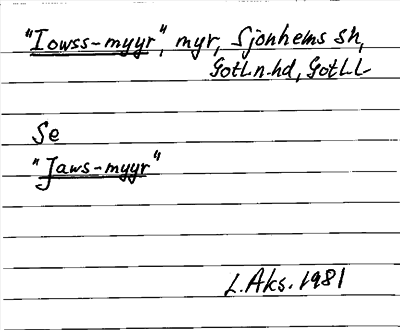 "Iowss-myyr", myr, Sjonhems sh,
Gotl.n.hd, Gotl.L
Se
"Jaws-myyr"
L.Aks. 1981